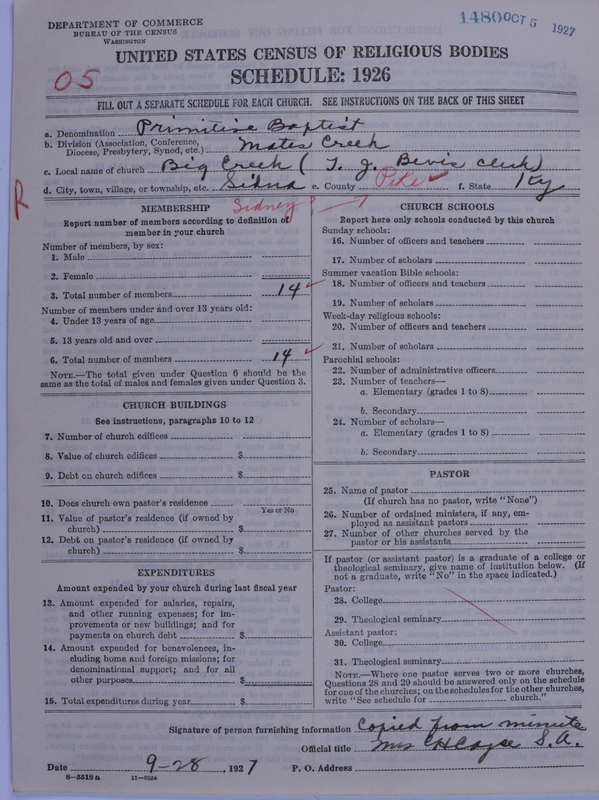 DEPARTMENT OF COMMERCE
BUREAU OF THE CENSUS
WASHINGTON
14800 OCT 5 1927
UNITED STATES CENSUS OF RELIGIOUS BODIES
SCHEDULE: 1926
05
FILL OUT A SEPARATE SCHEDULE FOR EACH CHURCH. SEE INSTRUCTIONS ON THE BACK OF THIS SHEET
a. Denomination Primitive Baptist
b. Division (Association, Conference, Diocese, Presbytery, Synod, etc.) Mates Creek
c. Local name of church Big Creek ( T. J. Bevis clerk)
d. City, town, village, or township, etc. Sidna e. County Pike f. State Ky
R
Sidney?
MEMBERSHIP
Report number of members according to definition of
member in your church
Number of members, by sex:
1. Male
2. Female
3. Total number of members 14
Number of members under and over 13 years old:
4. Under 13 years of age
5. 13 years old and over
6. Total number of members 14
NOTE.—The total given under Question 6 should be
same as the total of males and females given under Question 3.
CHURCH BUILDINGS
See instructions, paragraphs 10 to 12
7. Number of church edifices
8. Value of church edifices $
9. Debt on church edifices $
10. Does church own pastor's residence
Yes or No
11. Value of pastor's residence (if owned by
church) $
12. Debt on pastor's residence (if owned by
church) $
EXPENDITURES
Amount expended by your church during last fiscal year
13. Amount expended for salaries, repairs,
and other running expenses; for im-
provements or new buildings; and for
payments on church debt $
14. Amount expended for benevolences, in-
cluding home and foreign missions; for
denominational support; and for all
other purposes $
15. Total expenditures during year $
CHURCH SCHOOLS
Report here only schools conducted by this church
Sunday schools:
16. Number of officers and teachers
17. Number of scholars
Summer vacation Bible schools:
18. Number of officers and teachers
19. Number of scholars
Week-day religious schools:
20. Number of officers and teachers
21. Number of scholars
Parochial schools:
22. Number of administrative officers
23. Number of teachers—
a. Elementary (grades 1 to 8)
b. Secondary
24. Number of scholars—
a. Elementary (grades 1 to 8)
b. Secondary
PASTOR
25. Name of pastor
(If church has no pastor, write "None")
26. Number of ordained ministers, if any, em-
ployed as assistant pastors
27. Number of other churches served by the
pastor or his assistants
If pastor (or assistant pastor) is a graduate of a college or
theological seminary, give name of institution below. (If
not a graduate, write "No" in the space indicated.)
Pastor:
28. College
29. Theological seminary
Assistant pastor:
30. College
31. Theological seminary
NOTE.—Where one pastor serves two or more churches,
Questions 28 and 29 should be answered only on the schedule
for one of the churches; on the schedules for the other churches,
write "See schedule for church."
Signature of person furnishing information Copied from minute
Official title Mrs S.A.
Date 9-28, 1927 P. O. Address
8—5518a 11—9034